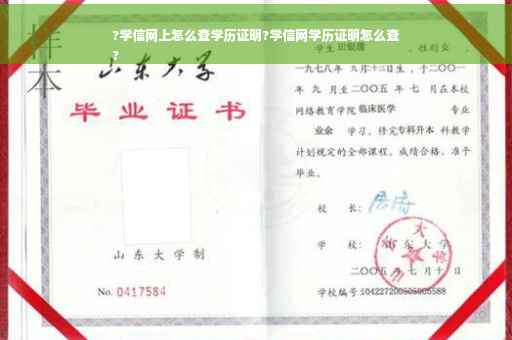 ?学信网上怎么查学历证明?学信网学历证明怎么查
?
样本
山东大学
毕业证书
山东大学制
No. 0417584
学生
性别
一九七八年 九月十二日生，于二〇〇一
年 九 月至二〇〇五 年 七 月在本校
网络教育学院 临床医学 专业
业余 学习，修完专科升本 科教学
计划规定的全部课程，成绩合格，准予
毕业。
校 长：
学 校： 山东大学
二〇〇五 年 七 月 十 日
学校编号: